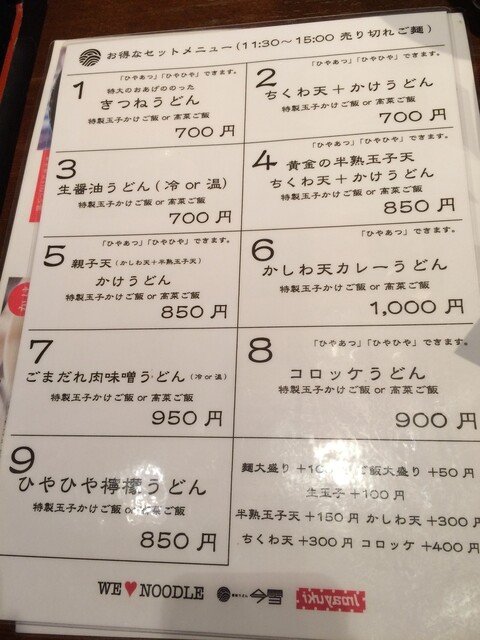 お得なセットメニュー(11:30〜15:00 売り切れご麺)
1
「ひやあつ」「ひやひや」できます。
特大のおあげののった
きつねうどん
特製玉子かけご飯 or 高菜ご飯
700 円
2
「ひやあつ」「ひやひや」できます。
ちくわ天+かけうどん
特製玉子かけご飯 or 高菜ご飯
700 円
3
生醤油うどん(冷 or 温)
特製玉子かけご飯 or 高菜ご飯
700 円
4
「ひやあつ」「ひやひや」できます。
黄金の半熟玉子天
ちくわ天+かけうどん
特製玉子かけご飯 or 高菜ご飯
850 円
5
「ひやあつ」「ひやひや」できます。
親子天(かしわ天+半熟玉子天)
かけうどん
特製玉子かけご飯 or 高菜ご飯
850 円
6
「ひやあつ」できます。
かしわ天カレーうどん
特製玉子かけご飯 or 高菜ご飯
1,000 円
7
ごまだれ肉味噌うどん(冷 or 温)
特製玉子かけご飯 or 高菜ご飯
950 円
8
「ひやあつ」「ひやひや」できます。
コロッケうどん
特製玉子かけご飯 or 高菜ご飯
900 円
9
ひやひや檸檬うどん
特製玉子かけご飯 or 高菜ご飯
850 円
麺大盛り ご飯大盛り +50 円
生玉子 +100 円
半熟玉子天 +150 円 かしわ天 +300 円
ちくわ天 +300 円 コロッケ +400 円
WE♥NOODLE
Imayuki